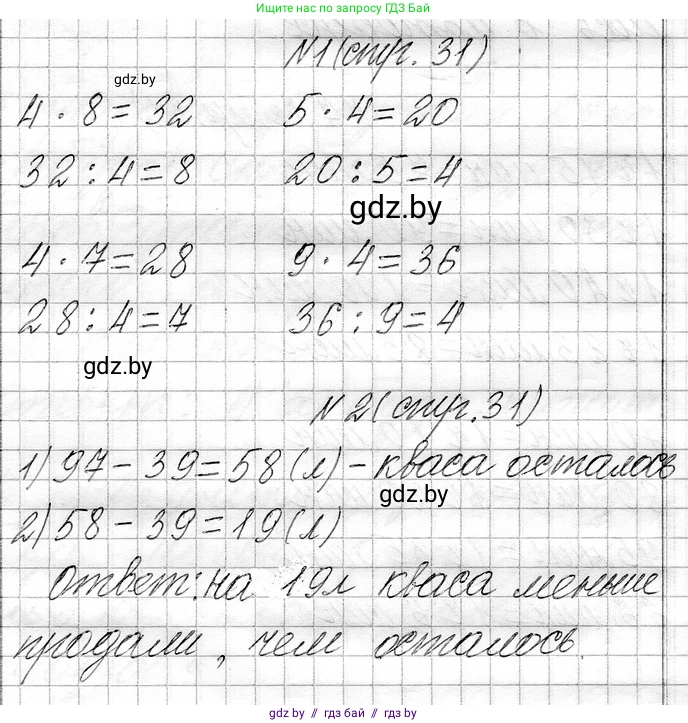 Ищите нас по запросу ГДЗ Бай
N1(стр. 31)
gdz.by
4 · 8 = 32 5 · 4 = 20
32 : 4 = 8 20 : 5 = 4
gdz.by
4 · 7 = 28 9 · 4 = 36
28 : 4 = 7 36 : 9 = 4
gdz.by
N 2(стр.31)
1) 97 - 39 = 58 (л) - кваса осталось
gdz.by
2) 58 - 39 = 19 (л)
Ответ: на 19л кваса меньше
продали, чем осталось.
gdz.by // гдз бай // gdz by